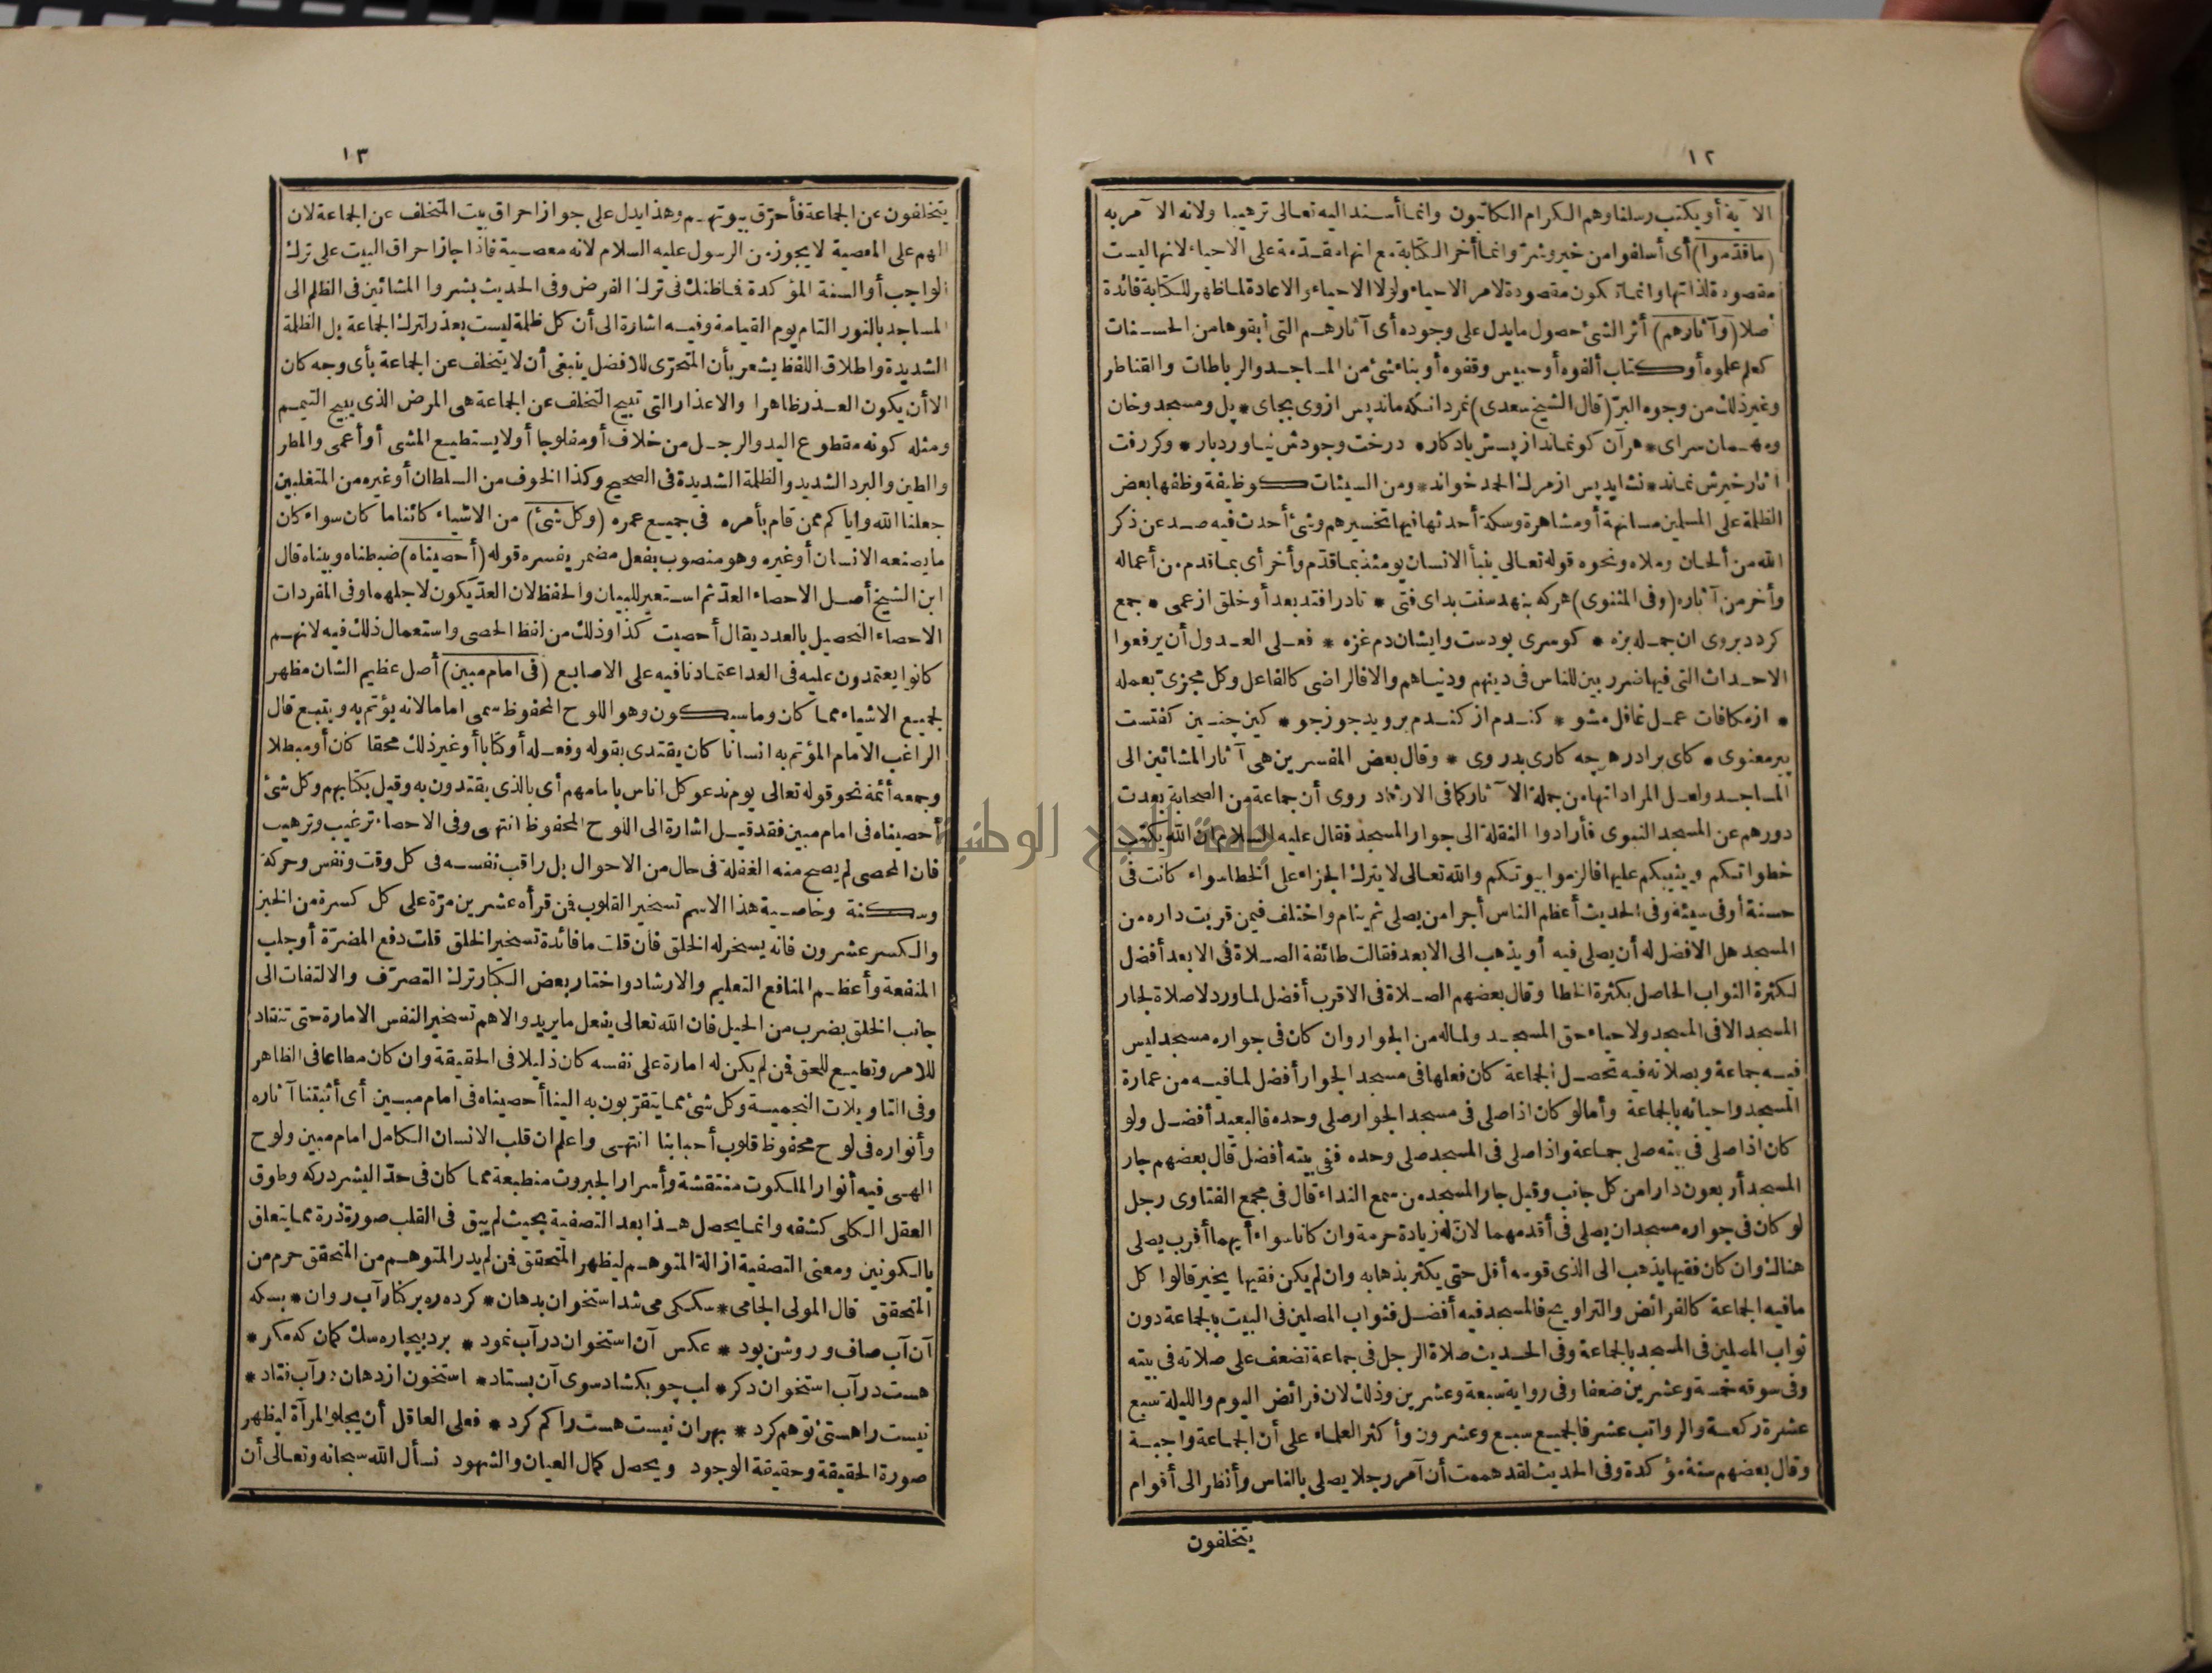 ١٢
الآية أو يكتب رسلنا وهم الكرام الكاتبون وانما أسند اليه تعالى ترهيبا ولانه الآمر به
(ما قدّموا) أى أسلفوا من خير وشرّ وانما أخر الكتابة مع انها مقدّمة على الاحياء لانها ليست
مقصودة لذاتها وانما تكون مقصودة لامر الاحياء ولولا الاحياء والاعادة لما ظهر للكتابة فائدة
أصلا (وآثارهم) أثر الشئ حصول ما يدل على وجوده أى آثارهم التى أبقوها من الحسنات
كعلم علموه أو كتاب ألفوه أو حبيس وقفوه أو بناء شئ من المساجد والرباطات والقناطر
وغير ذلك من وجوه البرّ (قال الشيخ سعدى) نمرد انكه ماند پس ازوى بجاى * پل ومسجد وخان
ومهمان سراى * هر آن كو نماند از پسش يادكار * درخت وجودش نياورد بار * وكر رفت
آثار خيرش نماند * نشايد پس از مرك الحمد خواند * ومن السيئات كوظيفة وظفها بعض
الظلمة على المسلمين مسانهة أو مشاهرة وسكة أحدثها فيها تخسيرهم وشئ أحدث فيه صد عن ذكر
الله من ألحان وملاه ونحوه قوله تعالى ينبأ الانسان يومئذ بما قدّم وأخر أى بما قدم من أعماله
وأخر من آثاره (وفى المثنوى) هركه بنهد سنت بد اى فتى * تا در افتد بعد أو خلق از عمى * جمع
كردد بروى ان جمله بزه * كو سرى بودست وايشان دم غزه * فعلى العدول أن يرفعوا
الاحداث التى فيها ضرر بين للناس فى دينهم ودنياهم والا فالراضى كالفاعل وكل مجزىّ بعمله
* از مكافات عمل غافل مشو * كندم از كندم برويد جو زجو * كين چنين كفتست
پير معنوى * كاى برادر هرچه كارى بدروى * وقال بعض المفسرين هى آثار المشائين الى
المساجد ولعل المراد انها من جملة الآثار كما فى الارشاد روى أن جماعة من الصحابة بعدت
دورهم عن المسجد النبوى فأرادوا النقلة الى جوار المسجد فقال عليه السلام ان الله يكتب
خطواتكم ويثيبكم عليها فالزموا بيوتكم والله تعالى لا يترك الجزاء على الخطا سواء كانت فى
حسنة أو فى سيئة وفى الحديث أعظم الناس أجرا من يصلى ثم ينام واختلف فيمن قربت داره من
المسجد هل الافضل له أن يصلى فيه أو يذهب الى الابعد فقالت طائفة الصلاة فى الابعد أفضل
لكثرة الثواب الحاصل بكثرة الخطا وقال بعضهم الصلاة فى الاقرب أفضل لما ورد لا صلاة لجار
المسجد الا فى المسجد ولاحياء حق المسجد ولما له من الجوار وان كان فى جواره مسجد ليس
فيه جماعة وبصلاته فيه تحصل الجماعة كان فعلها فى مسجد الجوار أفضل لما فيه من عمارة
المسجد واحيائه بالجماعة وأما لو كان اذا صلى فى مسجد الجوار صلى وحده فالبعيد أفضل ولو
كان اذا صلى فى بيته صلى جماعة واذا صلى فى المسجد صلى وحده ففى بيته أفضل قال بعضهم جار
المسجد أربعون دارا من كل جانب وقيل جار المسجد من سمع النداء قال فى مجمع الفتاوى رجل
لو كان فى جواره مسجدان يصلى فى أقدمهما لان له زيادة حرمة وان كانا سواء أيهما أقرب يصلى
هناك وان كان فقيها يذهب الى الذى قومه أقل حتى يكثر بذهابه وان لم يكن فقيها يخير قالوا كل
ما فيه الجماعة كالفرائض والتراويح فالمسجد فيه أفضل فثواب المصلين فى البيت بالجماعة دون
ثواب المصلين فى المسجد بالجماعة وفى الحديث صلاة الرجل فى جماعة تضعف على صلاته فى بيته
وفى سوقه خمسة وعشرين ضعفا وفى رواية سبعة وعشرين وذلك لان فرائض اليوم والليلة سبع
عشرة ركعة والرواتب عشر فالجميع سبع وعشرون وأكثر العلماء على أن الجماعة واجبة
وقال بعضهم سنة مؤكدة وفى الحديث لقد هممت أن آمر رجلا يصلى بالناس وأنظر الى أقوام
يتخلفون
١٣
يتخلفون عن الجماعة فأحرّق بيوتهم وهذا يدل على جواز احراق بيت المتخلف عن الجماعة لان
الهم على المعصية لا يجوز من الرسول عليه السلام لانه معصية فاذا جاز احراق البيت على ترك
الواجب أو السنة المؤكدة فما ظنك فى ترك الفرض وفى الحديث بشروا المشائين فى الظلم الى
المساجد بالنور التام يوم القيامة وفيه اشارة الى أن كل ظلمة ليست بعذر لترك الجماعة بل الظلمة
الشديدة واطلاق اللفظ يشعر بأن المتحرّى للافضل ينبغى أن لا يتخلف عن الجماعة بأى وجه كان
الا أن يكون العذر ظاهرا والاعذار التى تبيح التخلف عن الجماعة هى المرض الذى يبيح التيمم
ومثله كونه مقطوع اليد والرجل من خلاف أو مفلوجا أو لا يستطيع المشى أو أعمى والمطر
والطين والبرد الشديد والظلمة الشديدة فى الصحيح وكذا الخوف من السلطان أو غيره من المتغلبين
جعلنا الله واياكم ممن قام بأمره فى جميع عمره (وكل شئ) من الاشياء كائنا ما كان سواء كان
ما يصنعه الانسان أو غيره وهو منصوب بفعل مضمر يفسره قوله (أحصيناه) ضبطناه وبيناه قال
ابن الشيخ أصل الاحصاء العدّ ثم استعير للبيان والحفظ لان العدّ يكون لاجلهما وفى المفردات
الاحصاء التحصيل بالعدد يقال أحصيت كذا وذلك من لفظ الحصى واستعمال ذلك فيه لانهم
كانوا يعتمدون عليه فى العد اعتمادنا فيه على الاصابع (فى امام مبين) أصل عظيم الشان مظهر
لجميع الاشياء مما كان وما سيكون وهو اللوح المحفوظ سمى اماما لانه يؤتم به ويتبع قال
الراغب الامام المؤتم به انسانا كان يقتدى بقوله وفعله أو كتابا أو غير ذلك محقا كان أو مبطلا
وجمعه أئمة نحو قوله تعالى يوم ندعو كل اناس بامامهم أى بالذى يقتدون به وقيل بكتابهم وكل شئ
أحصيناه فى امام مبين فقد قيل اشارة الى اللوح المحفوظ انتهى وفى الاحصاء ترغيب وترهيب
فان المحصى لم يصح منه الغفلة فى حال من الاحوال بل راقب نفسه فى كل وقت ونفس وحركة
وسكنة وخاصية هذا الاسم تسخير القلوب فمن قرأه عشرين مرّة على كل كسرة من الخبز
والكسر عشرون فانه يسخر له الخلق فان قلت ما فائدة تسخير الخلق قلت دفع المضرّة أو جلب
المنفعة وأعظم المنافع التعليم والارشاد واختار بعض الكبار ترك التصرّف والالتفات الى
جانب الخلق بضرب من الحيل فان الله تعالى يفعل ما يريد والاهم تسخير النفس الامارة حتى تنقاد
للامر وتطيع للحق فمن لم يكن له امارة على نفسه كان ذليلا فى الحقيقة وان كان مطاعا فى الظاهر
وفى التاويلات النجمية وكل شئ مما يتقرّبون به الينا أحصيناه فى امام مبين أى أثبتنا آثاره
وأنواره فى لوح محفوظ قلوب أحبابنا انتهى واعلم ان قلب الانسان الكامل امام مبين ولوح
الهى فيه أنوار الملكوت منتقشة وأسرار الجبروت منطبعة مما كان فى حدّ البشر دركه وطوق
العقل الكلى كشفه وانما يحصل هذا بعد التصفية بحيث لم يبق فى القلب صورة ذرة مما يتعلق
بالكونين ومعنى التصفية ازالة المتوهم ليظهر المتحقق فمن لم يدر المتوهم من المتحقق حرم من
المتحقق قال المولى الجامى * سككى مى شد استخوان بدهان * كرده ره بر كنار آب روان * بسكه
آن آب صاف وروشن بود * عكس آن استخوان در آب نمود * برد بيچاره سك كمان كه مكر *
هست در آب استخوان دكر * لب چو بكشاد سوى آن بستاد * استخون از دهان در آب فتاد *
نيست را هستئ توهم كرد * بهر ان نيست هست را كم كرد * فعلى العاقل أن يجلو المرآة ليظهر
صورة الحقيقة وحقيقة الوجود ويحصل كمال العيان والشهود نسأل الله سبحانه وتعالى أن
جامعة النجاح الوطنية